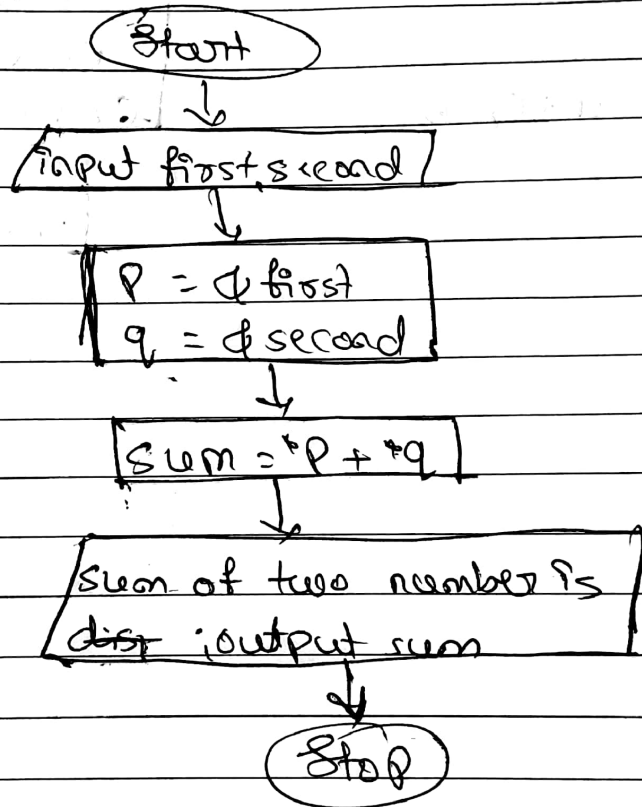 Start
input first, second
p = &first
q = &second
sum = *p + *q
sum of two number is
; output sum
Stop